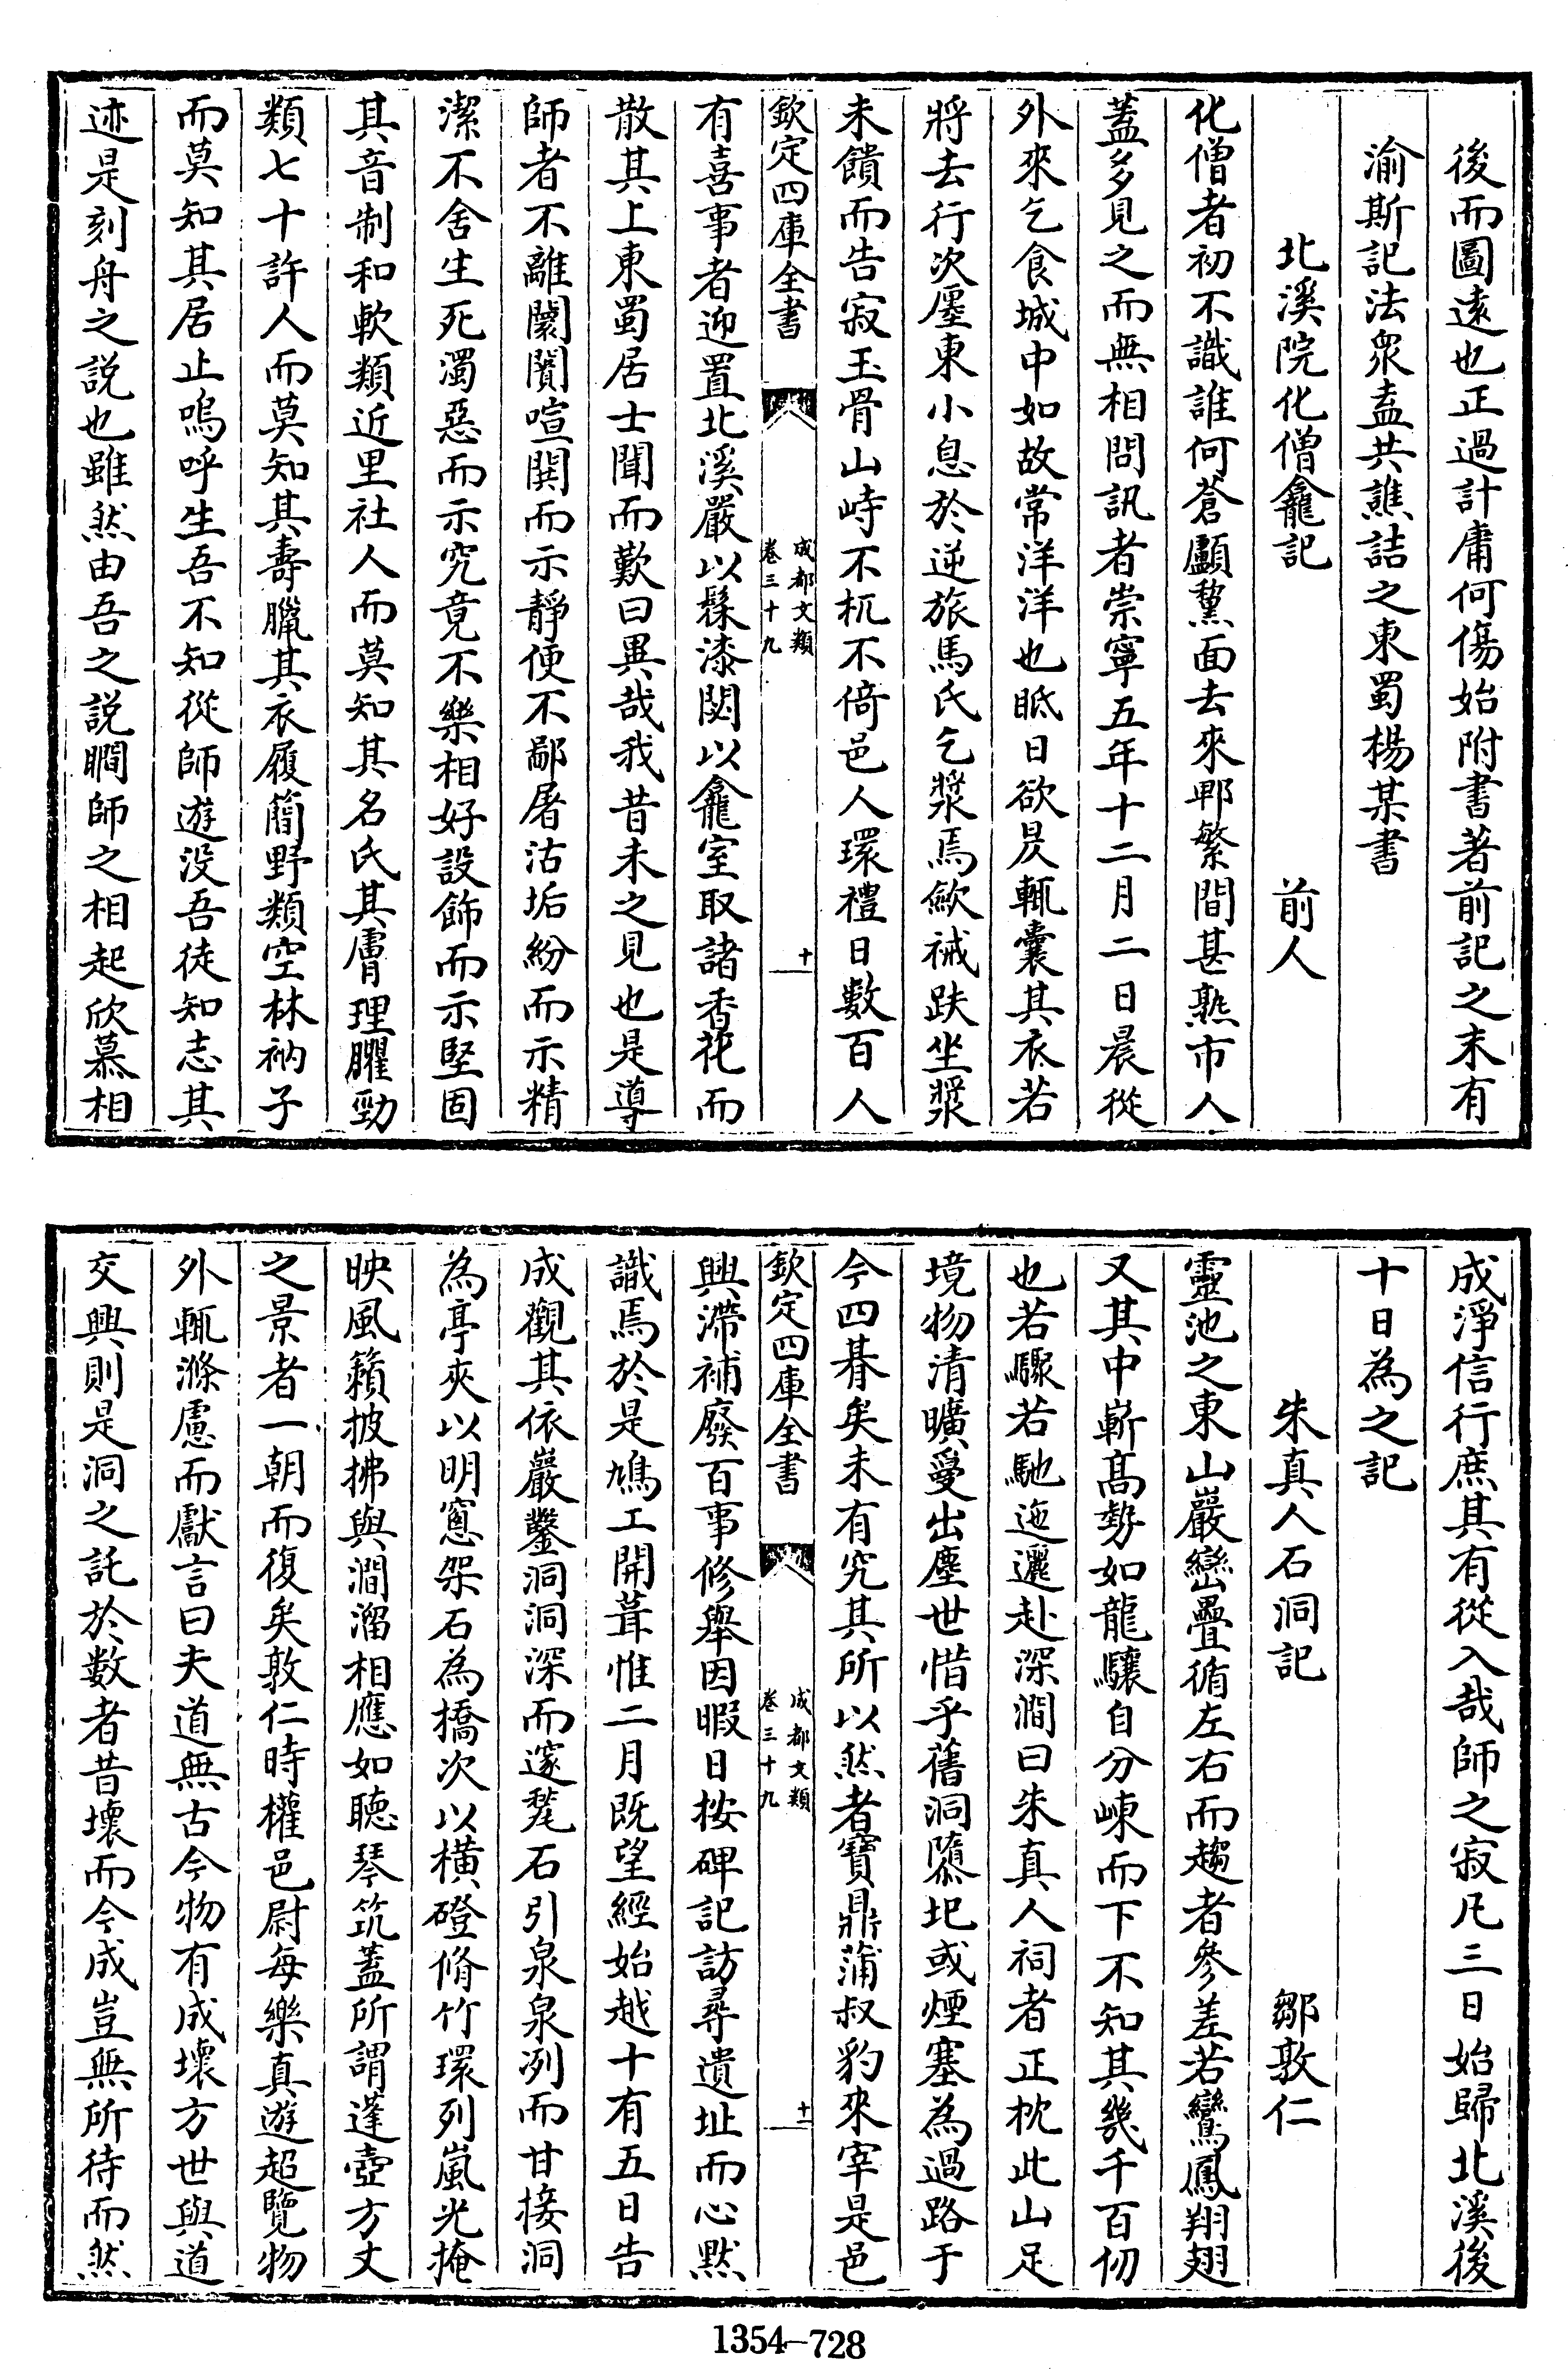 後而圖遠也正過計庸何傷始附書著前記之末有
渝斯記法衆盍共譙詰之東蜀楊某書
北溪院化僧龕記 前人
化僧者初不識誰何蒼顱黧面去來郫繁間甚熟市人
蓋多見之而無相問訊者崇寧五年十二月二日晨從
外來乞食城中如故常洋洋也眡日欲昃輒囊其衣若
將去行次廛東小息於逆旅馬氏乞漿焉歛裓趺坐漿
未饋而告寂玉骨山峙不杌不倚邑人環禮日數百人
欽定四庫全書
成都文類
卷三十九
十
有喜事者迎置北溪嚴以髹漆閟以龕室取諸香花而
散其上東蜀居士聞而歎曰異哉我昔未之見也是導
師者不離闤闠喧閧而示靜便不鄙屠沽垢紛而示精
潔不舍生死濁惡而示究竟不樂相好設飾而示堅固
其音制和軟類近里社人而莫知其名氏其膚理臞勁
類七十許人而莫知其壽臘其衣履簡野類空林衲子
而莫知其居止嗚呼生吾不知從師遊没吾徒知志其
迹是刻舟之説也雖然由吾之説瞷師之相起欣慕相
成淨信行庶其有從入哉師之寂凡三日始歸北溪後
十日為之記
朱真人石洞記 鄒敦仁
靈池之東山巖巒疊循左右而趨者參差若鸞鳳翔翅
又其中嶄髙勢如龍驤自分崠而下不知其幾千百仞
也若驟若馳迤邐赴深澗曰朱真人祠者正枕此山足
境物清曠敻出塵世惜乎舊洞隳圯或煙塞為過路于
今四朞矣未有究其所以然者寶鼎蒲叔豹來宰是邑
欽定四庫全書
成都文類
卷三十九
十一
興滯補廢百事修舉因暇日按碑記訪尋遺址而心黙
識焉於是鳩工開葺惟二月既望經始越十有五日告
成觀其依巖鑿洞洞深而邃甃石引泉泉冽而甘接洞
為亭夾以明窻架石為橋次以橫磴脩竹環列嵐光掩
映風籟披拂與澗溜相應如聴琴筑蓋所謂蓬壺方丈
之景者一朝而復矣敦仁時權邑尉每樂真遊超覽物
外輒滌慮而獻言曰夫道無古今物有成壞方世與道
交興則是洞之託於數者昔壞而今成豈無所待而然
1354-728